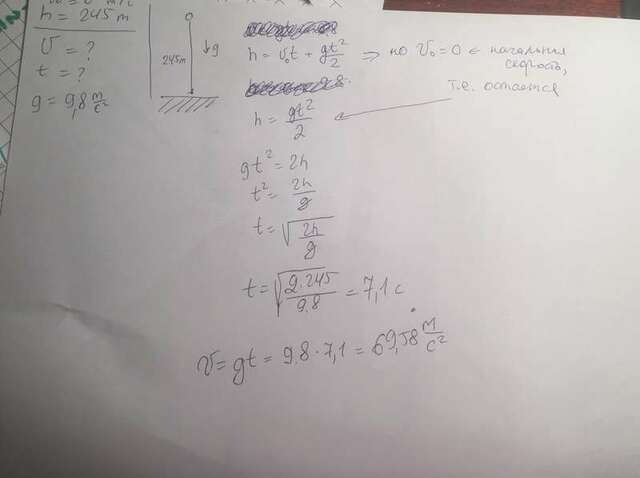 h = 245 m
V = ?
t = ?
g = 9,8 м/с²
245m
g
h = v₀t + gt²/2 ⇒ но V₀ = 0 ← начальная
скорость,
т.е. остаётся
h = gt²/2
gt² = 2h
t² = 2h/g
t = √(2h/g)
t = √(2·245/9.8) = 7,1 с
v = gt = 9,8 · 7,1 = 69,58 м/с²